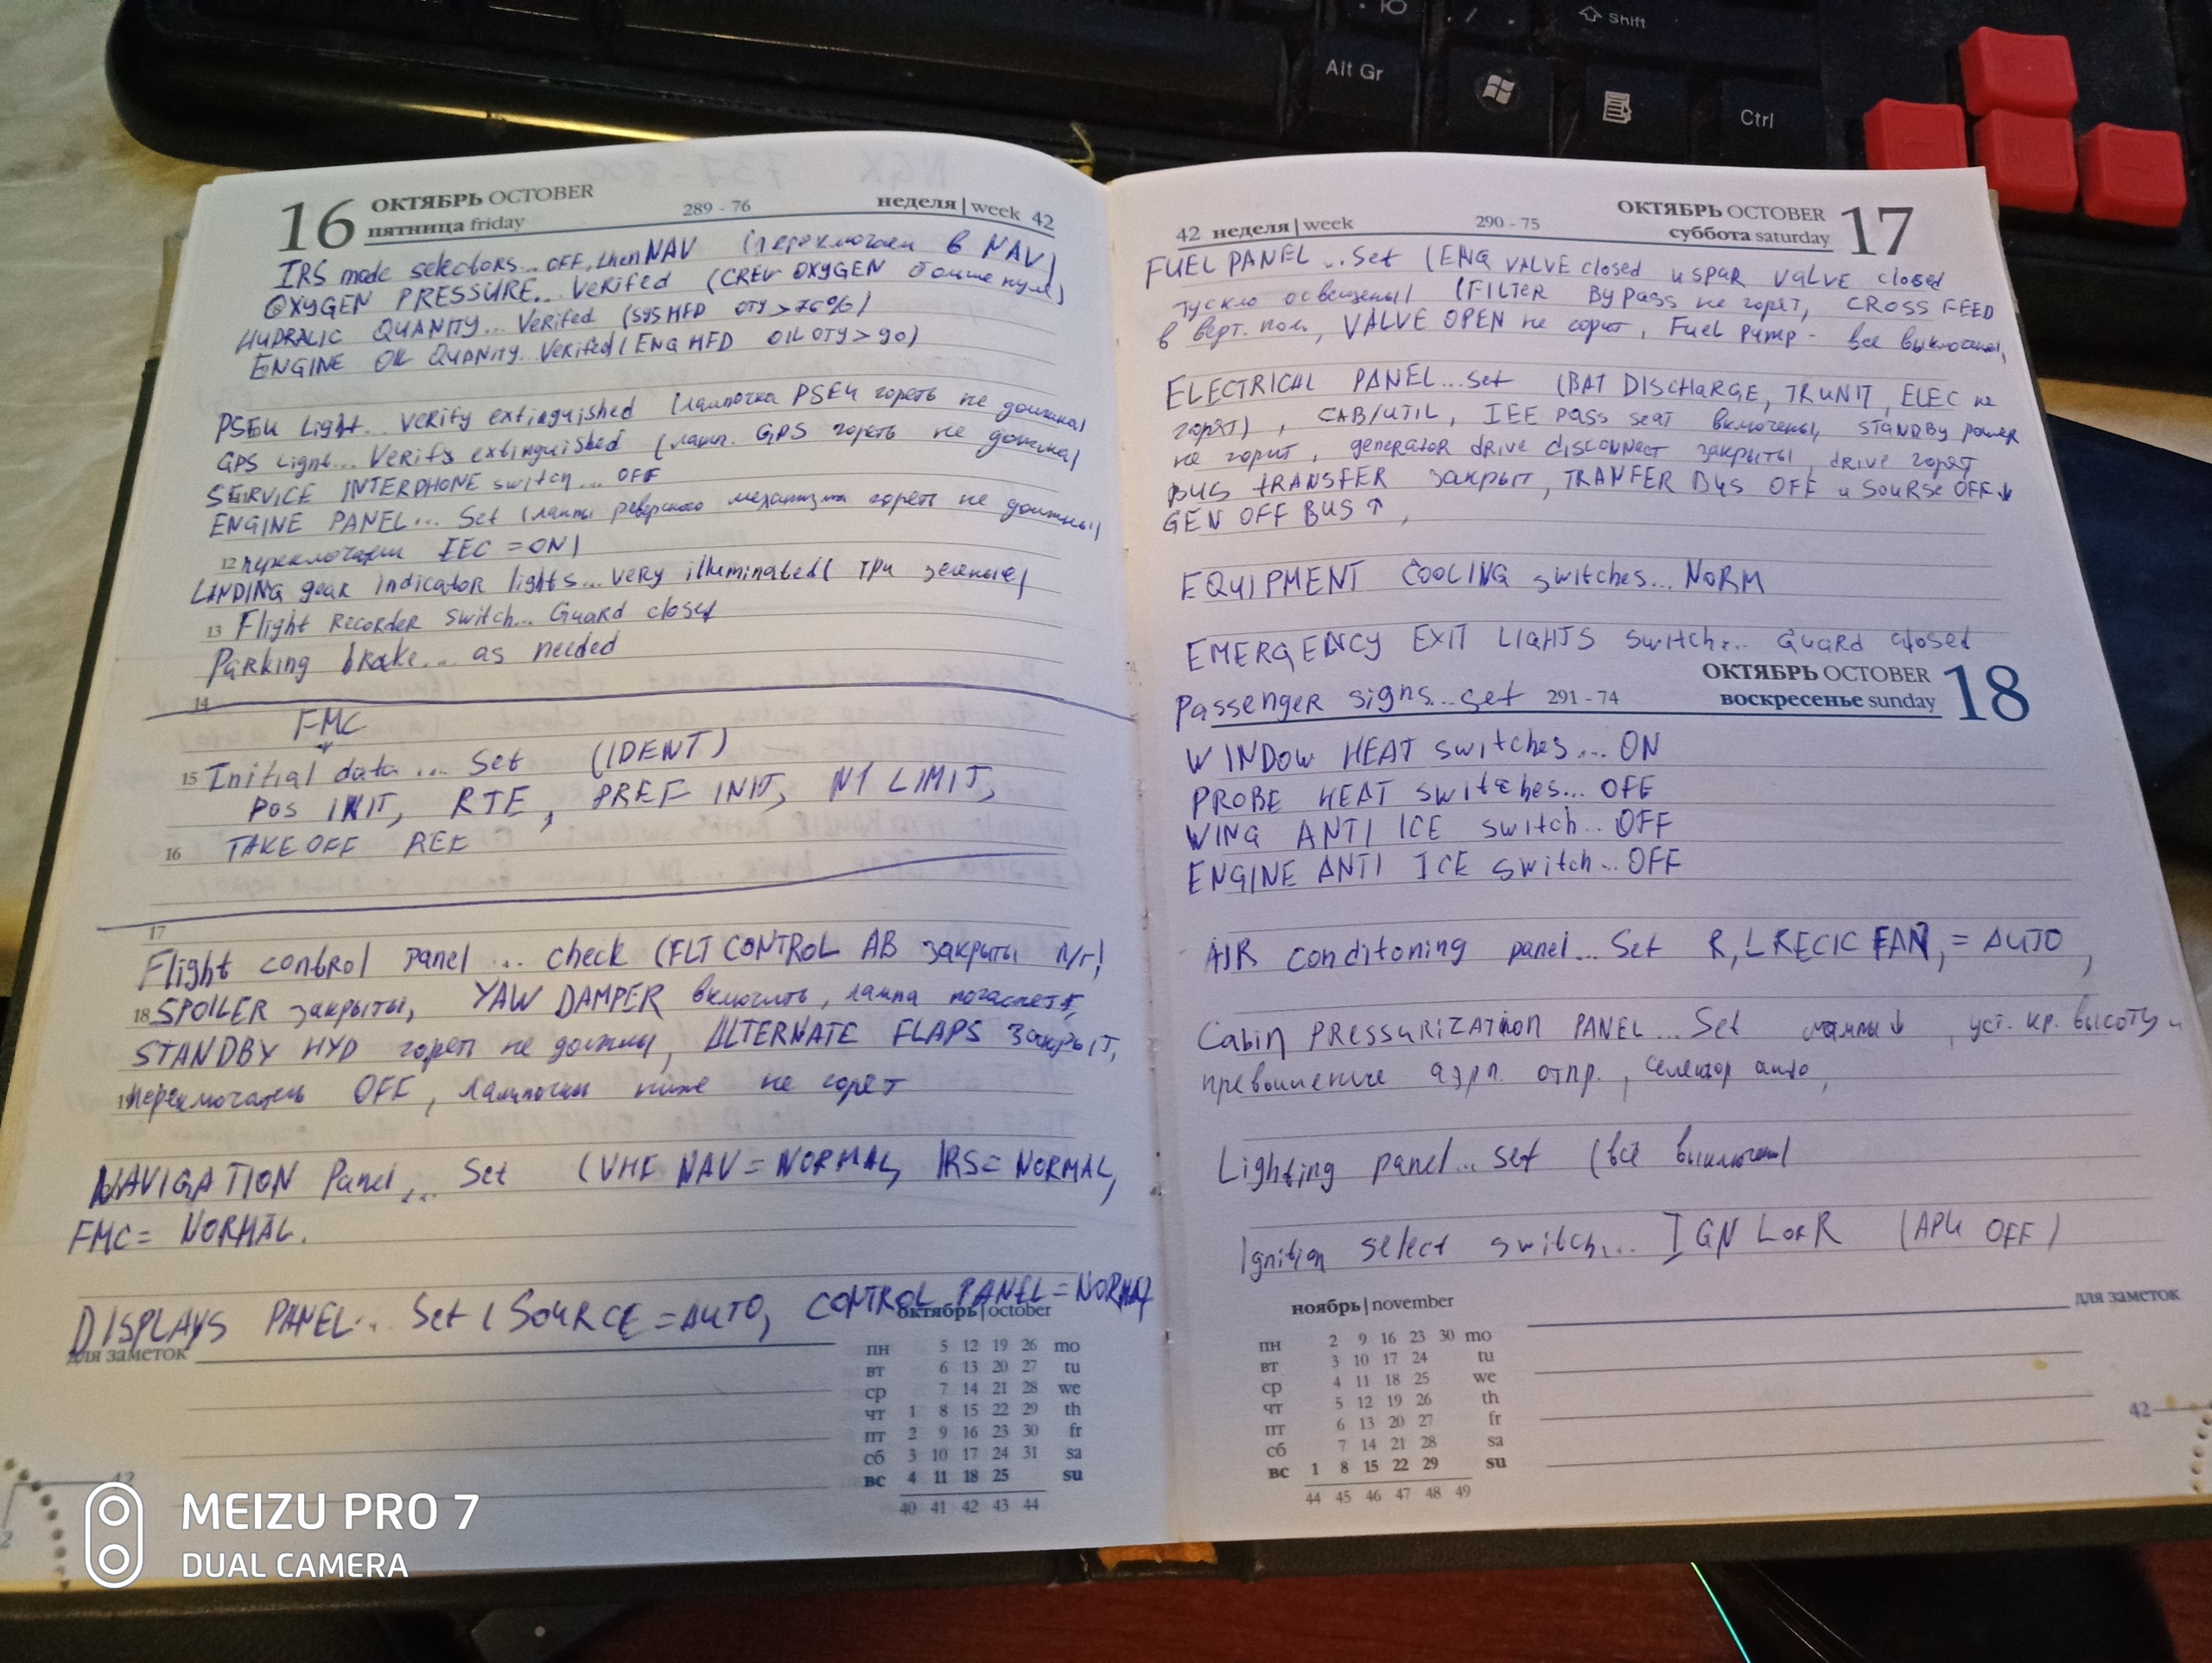 Ю
Shift
Alt Gr
Ctrl
16 ОКТЯБРЬ OCTOBER
пятница friday
289 - 76
неделя | week 42
IRS mode selectors... OFF, then NAV (переключаем в NAV)
OXYGEN PRESSURE... Verifed (CREW OXYGEN больше нуля)
HUDRALIC QUANITY... Verifed (SYS MFD QTY > 76%)
ENGINE OIL QUANITY.. Verifed (ENG MFD OIL QTY > 90)
PSEU Light... Verify extinguished (лампочка PSEU гореть не должна)
GPS Light... Verify extinguished (ламп. GPS гореть не должна)
SERVICE INTERPHONE switch... OFF
ENGINE PANEL... Set (лампы реверсного механизма гореть не должны)
12 переключатели EEC = ON)
LANDING gear indicator lights... very illuminated (три зеленые)
13 Flight RECORDER switch... Guard closed
Parking brake... as needed
14
FMC
15 Initial data... Set (IDENT)
POS INIT, RTE, PREF INIT, N1 LIMIT,
16 TAKE OFF REF
17
Flight control panel ... check (FLT CONTROL AB закрыты л/г!
18 SPOILER закрыты, YAW DAMPER включить, лампа погаснет,
STANDBY HYD гореть не должны, ALTERNATE FLAPS закрыт,
переключатель OFF, лампочки ниже не горят
NAVIGATION Panel... Set (VHF NAV = NORMAL, IRS = NORMAL,
FMC = NORMAL.
DISPLAYS PANEL... Set (SOURCE = AUTO, CONTROL PANEL = NORMAL
для заметок
октябрь | october
пн 5 12 19 26 mo
вт 6 13 20 27 tu
ср 7 14 21 28 we
чт 1 8 15 22 29 th
пт 2 9 16 23 30 fr
сб 3 10 17 24 31 sa
вс 4 11 18 25 su
40 41 42 43 44
42
MEIZU PRO 7
DUAL CAMERA
42 неделя | week
290 - 75
ОКТЯБРЬ OCTOBER 17
суббота saturday
FUEL PANEL ... Set (ENG VALVE closed и SPAR VALVE closed
тускло освещены) (FILTER BYPASS не горят, CROSS FEED
в верт. пол, VALVE OPEN не горит, Fuel Pump - все выключены,
ELECTRICAL PANEL... Set (BAT DISCHARGE, TR UNIT, ELEC не
горят), CAB/UTIL, IEE pass seat включены, STANDBY power
не горит, generator drive disconnect закрыты, drive горят
BUS TRANSFER закрыт, TRANFER BUS OFF и SOURSE OFF↓
GEN OFF BUS ↑,
EQUIPMENT COOLING switches... NORM
EMERGENCY EXIT LIGHTS switch... Guard closed
ОКТЯБРЬ OCTOBER 18
воскресенье sunday
Passenger signs... set 291 - 74
WINDOW HEAT switches... ON
PROBE HEAT switches... OFF
WING ANTI ICE switch... OFF
ENGINE ANTI ICE switch... OFF
AIR conditoning panel... Set R, L RECIC FAN, = AUTO,
Cabin PRESSURIZATION PANEL... Set лампы↓, уст. кр. высоту и
превышение аэрп. отпр., селектор auto,
Lighting panel... set (все выключены)
Ignition select switch... IGN L or R (APU OFF)
ноябрь | november
для заметок
пн 2 9 16 23 30 mo
вт 3 10 17 24 tu
ср 4 11 18 25 we
чт 5 12 19 26 th
пт 6 13 20 27 fr
сб 7 14 21 28 sa
вс 1 8 15 22 29 su
44 45 46 47 48 49
42